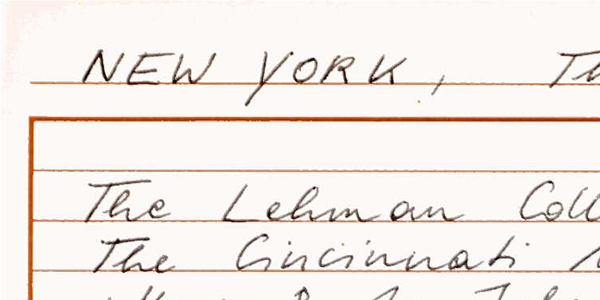 NEW YORK, Th
The Lehman Coll
The Cincinnati